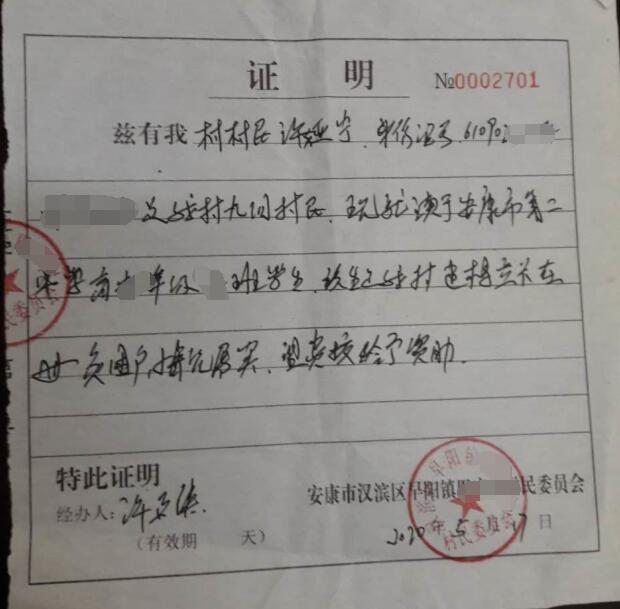 证 明
№0002701
兹有我 村村民 许 宁 身份证号 6109
村九组村民 现就读于安康市第二
中学高 年级 班学生 该生 村建档立卡在
贫困户 情况属实 望贵校给予资助
特此证明
安康市汉滨区早阳镇 民委员会
经办人: 许
2020年5 17日
(有效期 天)
早阳
村民委员会
民委员会